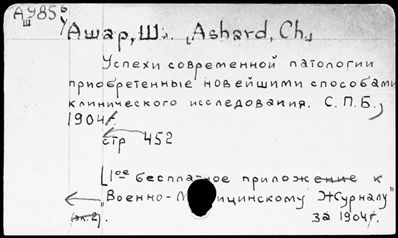 АУ856
Ш
Ашар, Ш. [Ashard, Ch.]
Успехи современной патологии
приобретенные новейшими способами
клинического исследования. С.П.Б.,
1904г.
стр 452
[1ое бесплатное приложение к
"Военно-Медицинскому Журналу"
за 1904г.